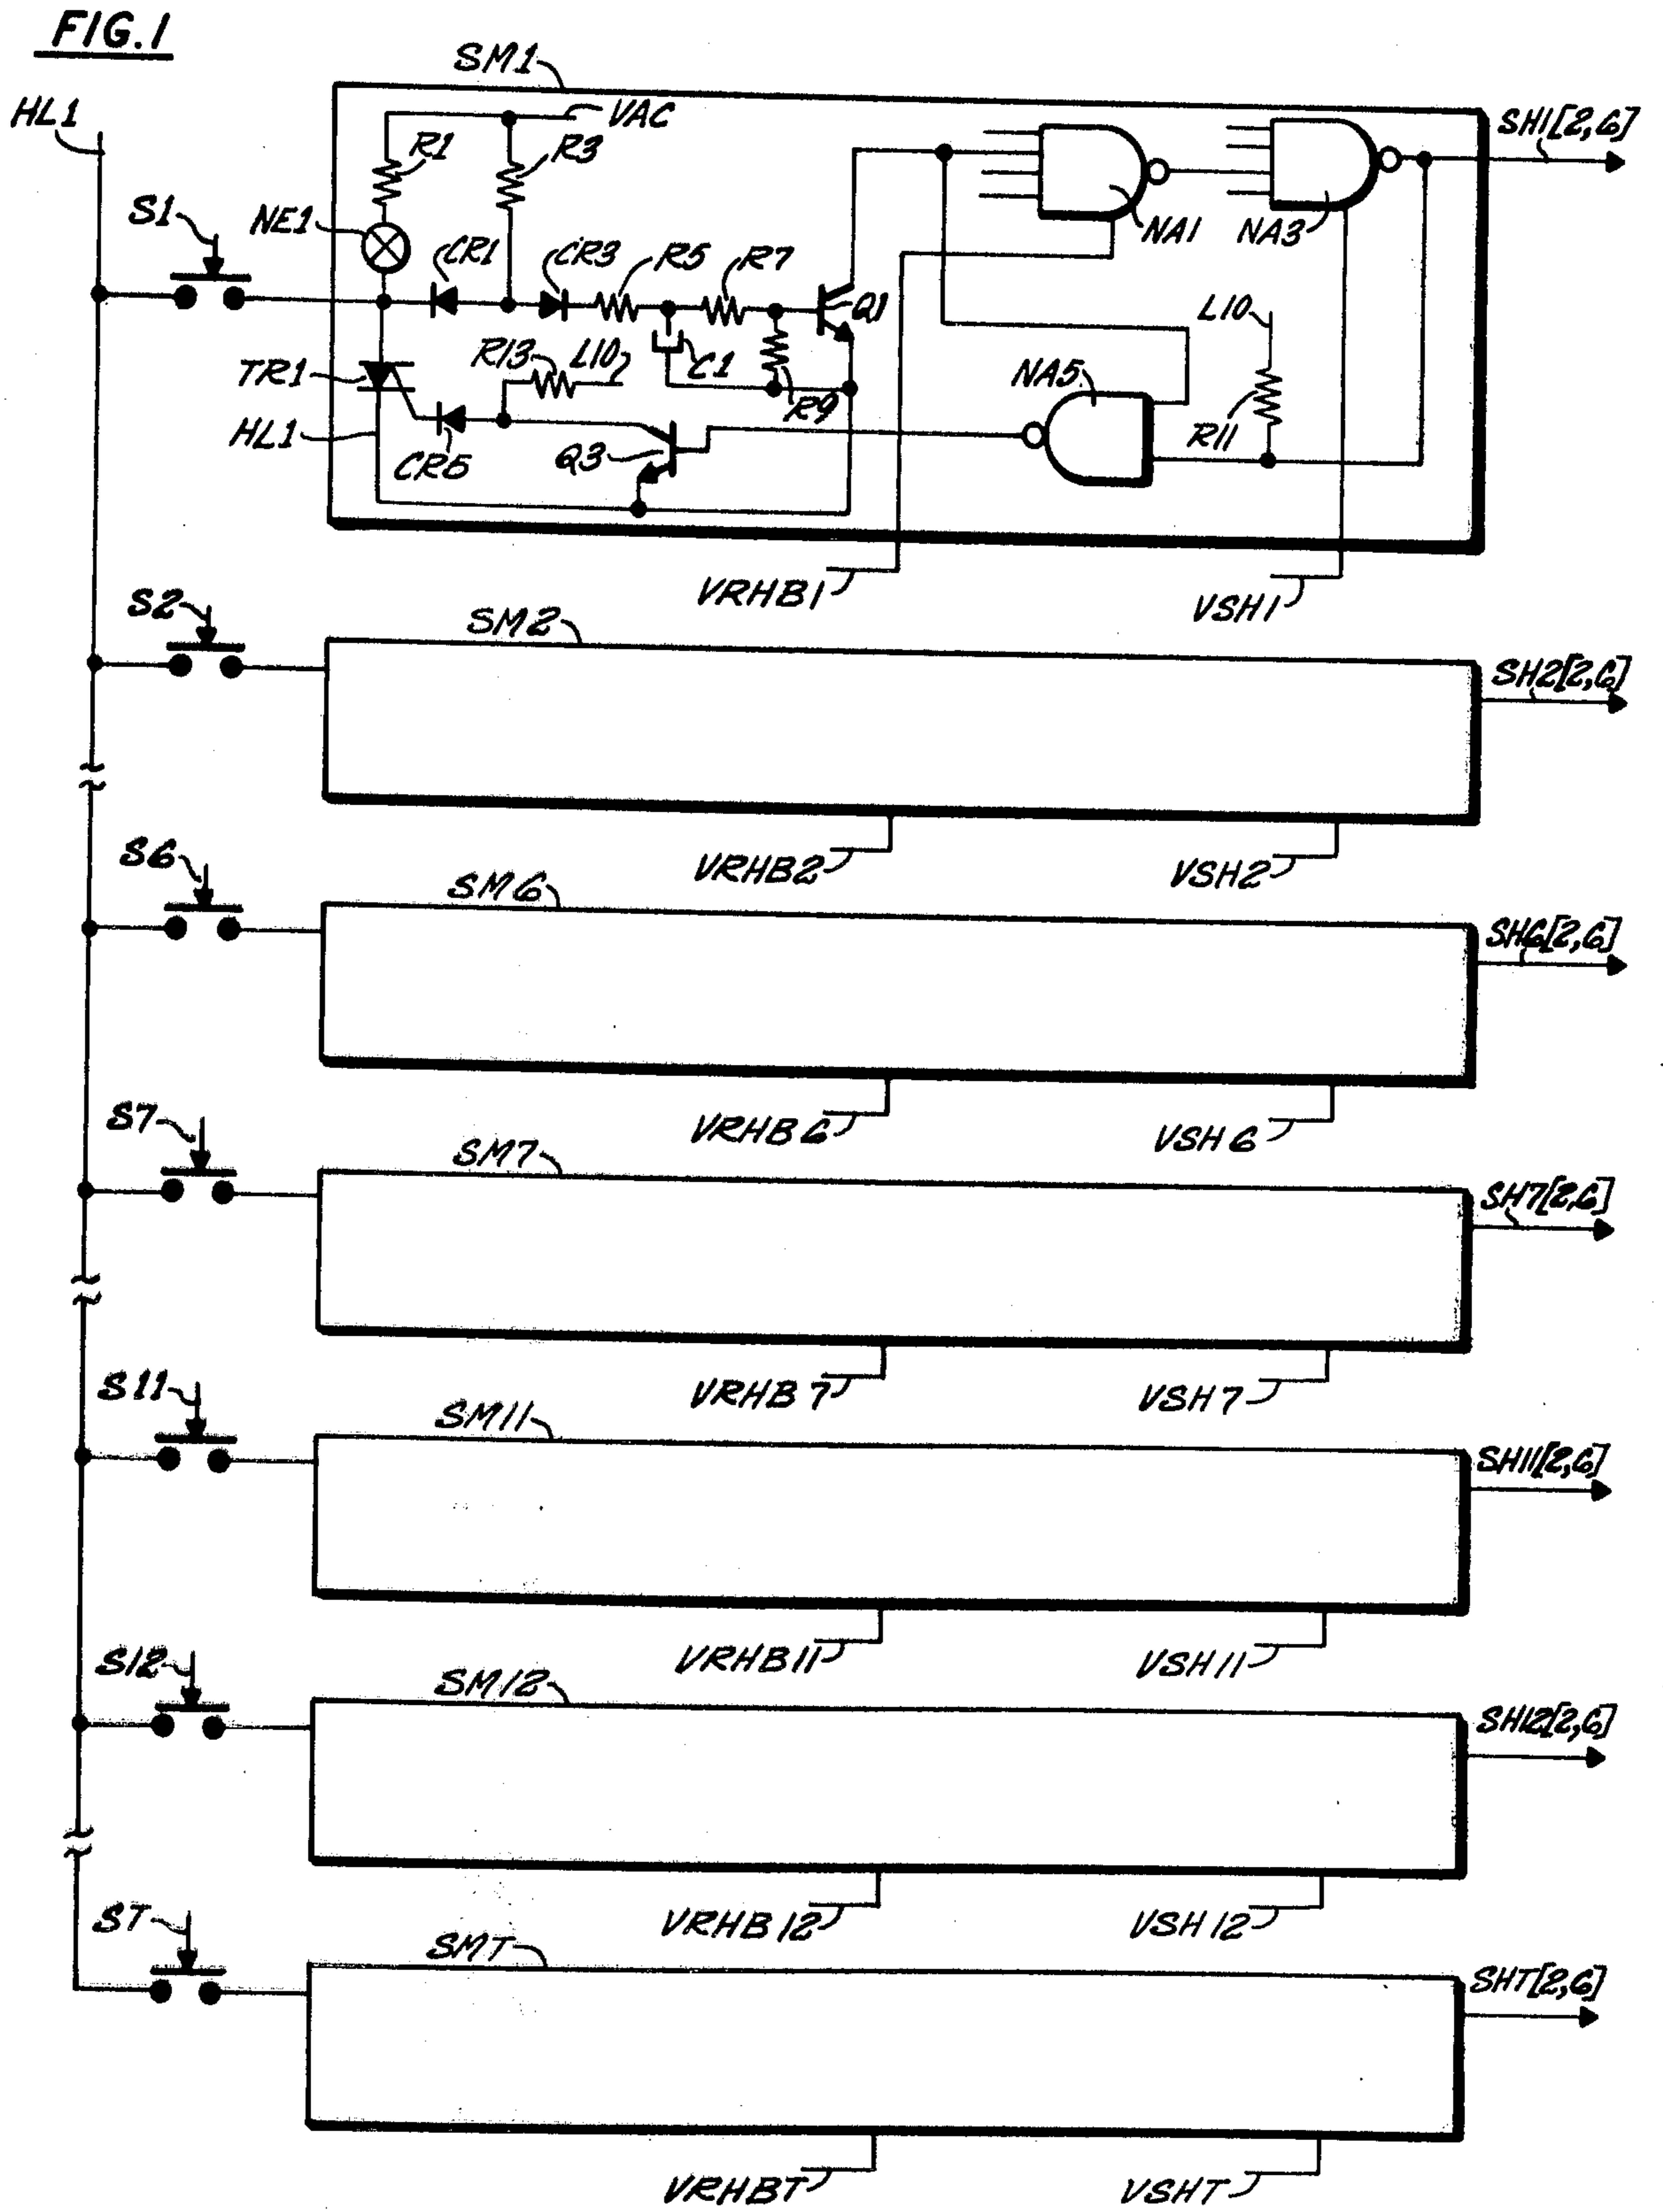 FIG.1
SM1
HL1
VAC
SH1[2,6]
R1
R3
S1
NE1
CR1
CR3
R5
R7
Q1
NA1
NA3
TR1
R13
L10
C1
R9
NA5
L10
HL1
CR5
Q3
R11
VRHB1
VSH1
S2
SM2
SH2[2,6]
VRHB2
VSH2
S6
SM6
SH6[2,6]
VRHB6
VSH6
S7
SM7
SH7[2,6]
VRHB7
VSH7
S11
SM11
SH11[2,6]
VRHB11
VSH11
S12
SM12
SH12[2,6]
VRHB12
VSH12
ST
SMT
SHT[2,6]
VRHBT
VSHT